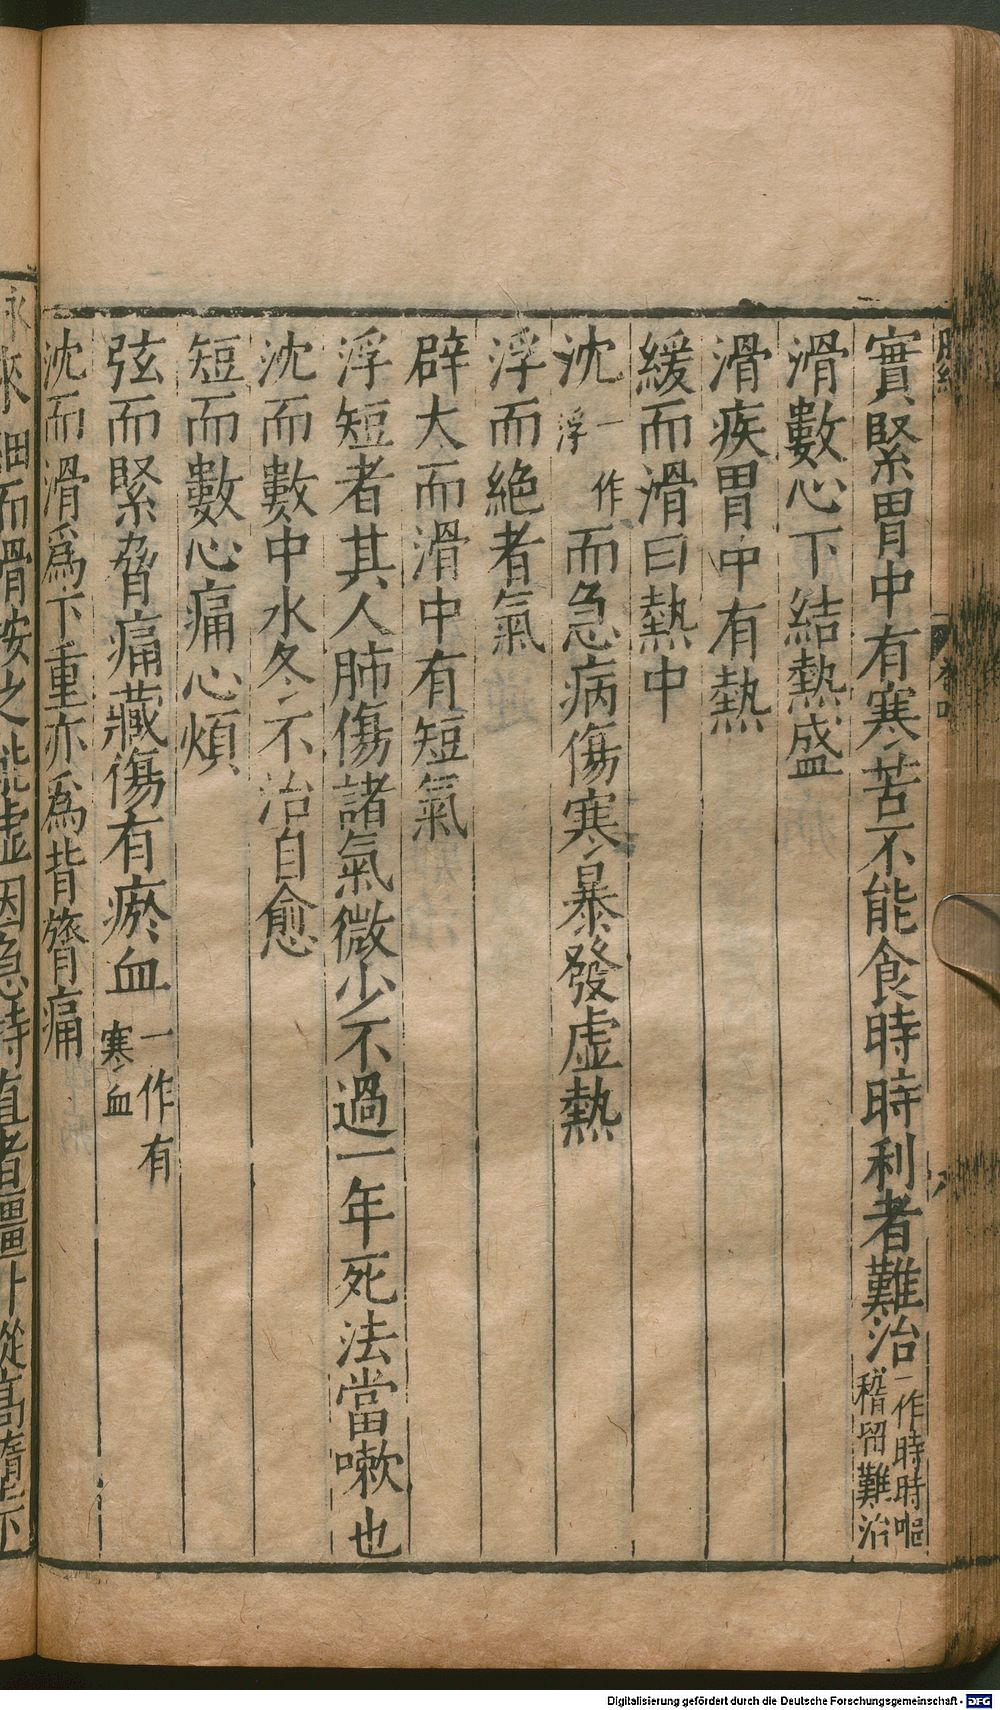 實緊胃中有寒苦不能食時時利者難治一作時時嘔稽留難治
滑數心下結熱盛
滑疾胃中有熱
緩而滑曰熱中
沈一作浮而急病傷寒暴發虛熱
浮而絶者氣
辟大而滑中有短氣
浮短者其人肺傷諸氣微少不過一年死法當嗽也
沈而數中水冬不治自愈
短而數心痛心煩
弦而緊脅痛藏傷有瘀血一作有寒血
沈而滑爲下重亦爲背膂痛
來細而滑按之能虛因急持直者僵仆從高墮下
Digitalisierung gefördert durch die Deutsche Forschungsgemeinschaft - DFG